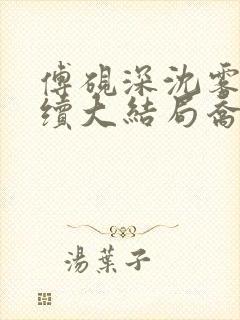 傅硯深沈雾
續大結局喬
湯葉子